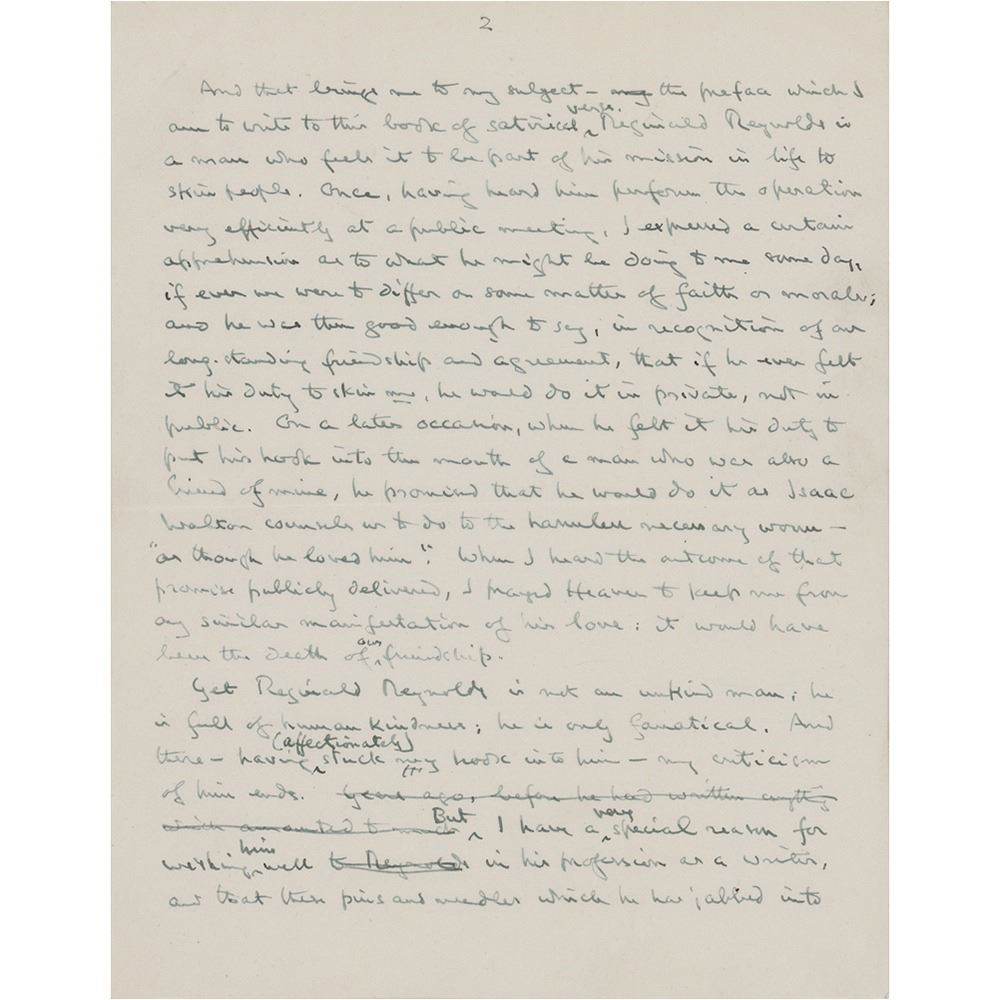 2
And that brings me to my subject – my the preface which I
am to write to this book of satirical verse. Reginald Reynolds is
a man who feels it to be part of his mission in life to
skin people. Once, having heard him perform the operation
very efficiently at a public meeting, I expressed a certain
apprehension as to what he might be doing to me some day,
if ever we were to differ on some matter of faith or morals;
and he was then good enough to say, in recognition of our
long-standing friendship and agreement, that if he ever felt
it his duty to skin me, he would do it in private, not in
public. On a later occasion, when he felt it his duty to
put his hook into the mouth of a man who was also a
friend of mine, he promised that he would do it as Isaac
Walton counsels us to do to the harmless necessary worm –
"as though he loved him". When I heard the outcome of that
promise publicly delivered, I prayed Heaven to keep me from
any similar manifestation of his love: it would have
been the death of our friendship.
Yet Reginald Reynolds is not an unkind man; he
is full of human kindness; he is only fanatical. And
there – having (affectionately) stuck my hook into him – my criticism
of him ends. Years ago, before he had written anything
which amounted to much But I have a very special reason for
wishing him well to Reynolds in his profession as a writer,
and that these pins and needles which he has jabbed into